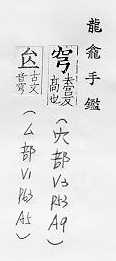 龍龕手鑑
穹 高也 (穴部 V3 P53 A9)
古文音穹 (厶部 V1 P63 A5)